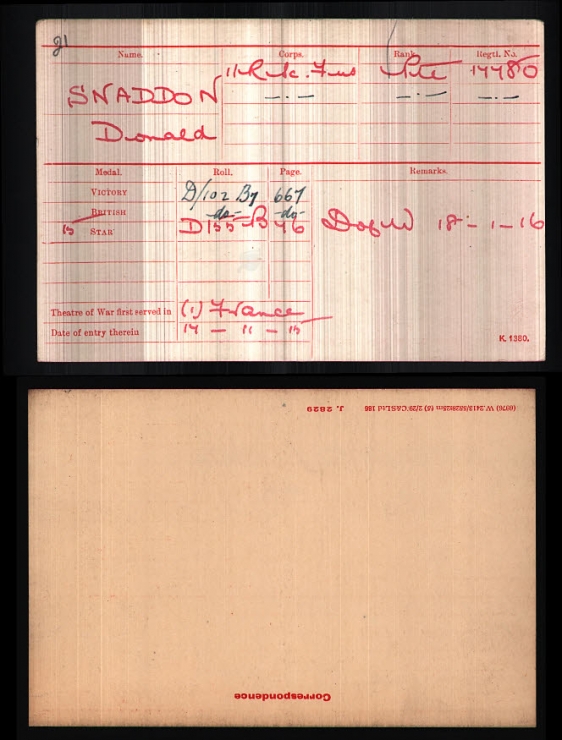 21
Name. Corps. Rank. Regtl. No.
11/R. Sc. Fus Pte 17480
SNADDON — . — — . — — . —
Donald
Medal. Roll. Page. Remarks.
VICTORY D/102 B7 667
BRITISH -do- -do-
15 STAR D/35 B 46 D of W 18 - 1 - 16
Theatre of War first served in (1) France
Date of entry therein 14 — 11 — 15
K. 1380.
(6076) W.2413/5829825m (3) 2/29.CASLtd 188 J. 2829
Correspondence